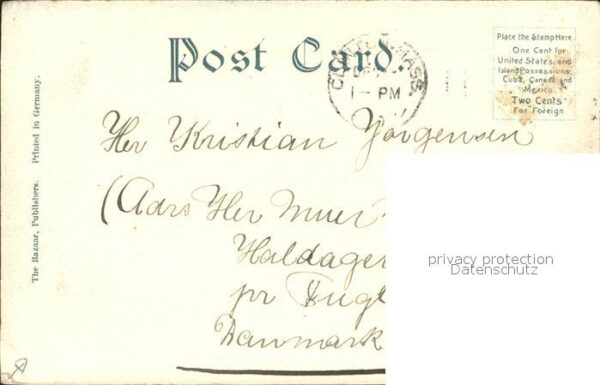 Post Card.
CLINTON, MASS.
1 - PM
Place the Stamp Here
One Cent for
United States and
Island Possessions
Cuba, Canada and
Mexico.
Two Cents
For Foreign
Her Kristian Jörgensen
(Adrs Her Muur
Haldager
pr
Danmark
The Bazaar, Publishers. Printed in Germany.
privacy protection
Datenschutz